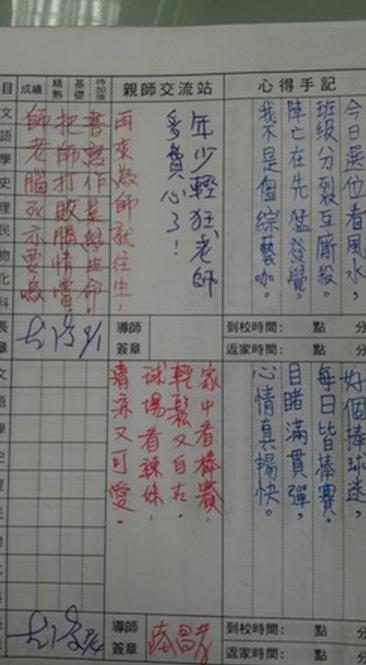 心得手記
今日選位看風水，
班級分裂互廝殺。
陣亡在先猛發覺，
我不是個綜藝咖。
到校時間： 點 分
返家時間： 點 分
親師交流站
年少輕狂，老師
多費心了！
再來為師就往生，
導師
簽章
待加強
基礎
精熟
成績
目
文
語
學
史
理
民
物
化
科
長
章
好個棒球迷，
每日皆棒賽。
目睹滿貫彈，
心情真暢快。
到校時間： 點 分
返家時間： 點 分
家中看棒賽，
輕鬆又自在．
球場看辣妹，
清涼又可愛．
導師
簽章